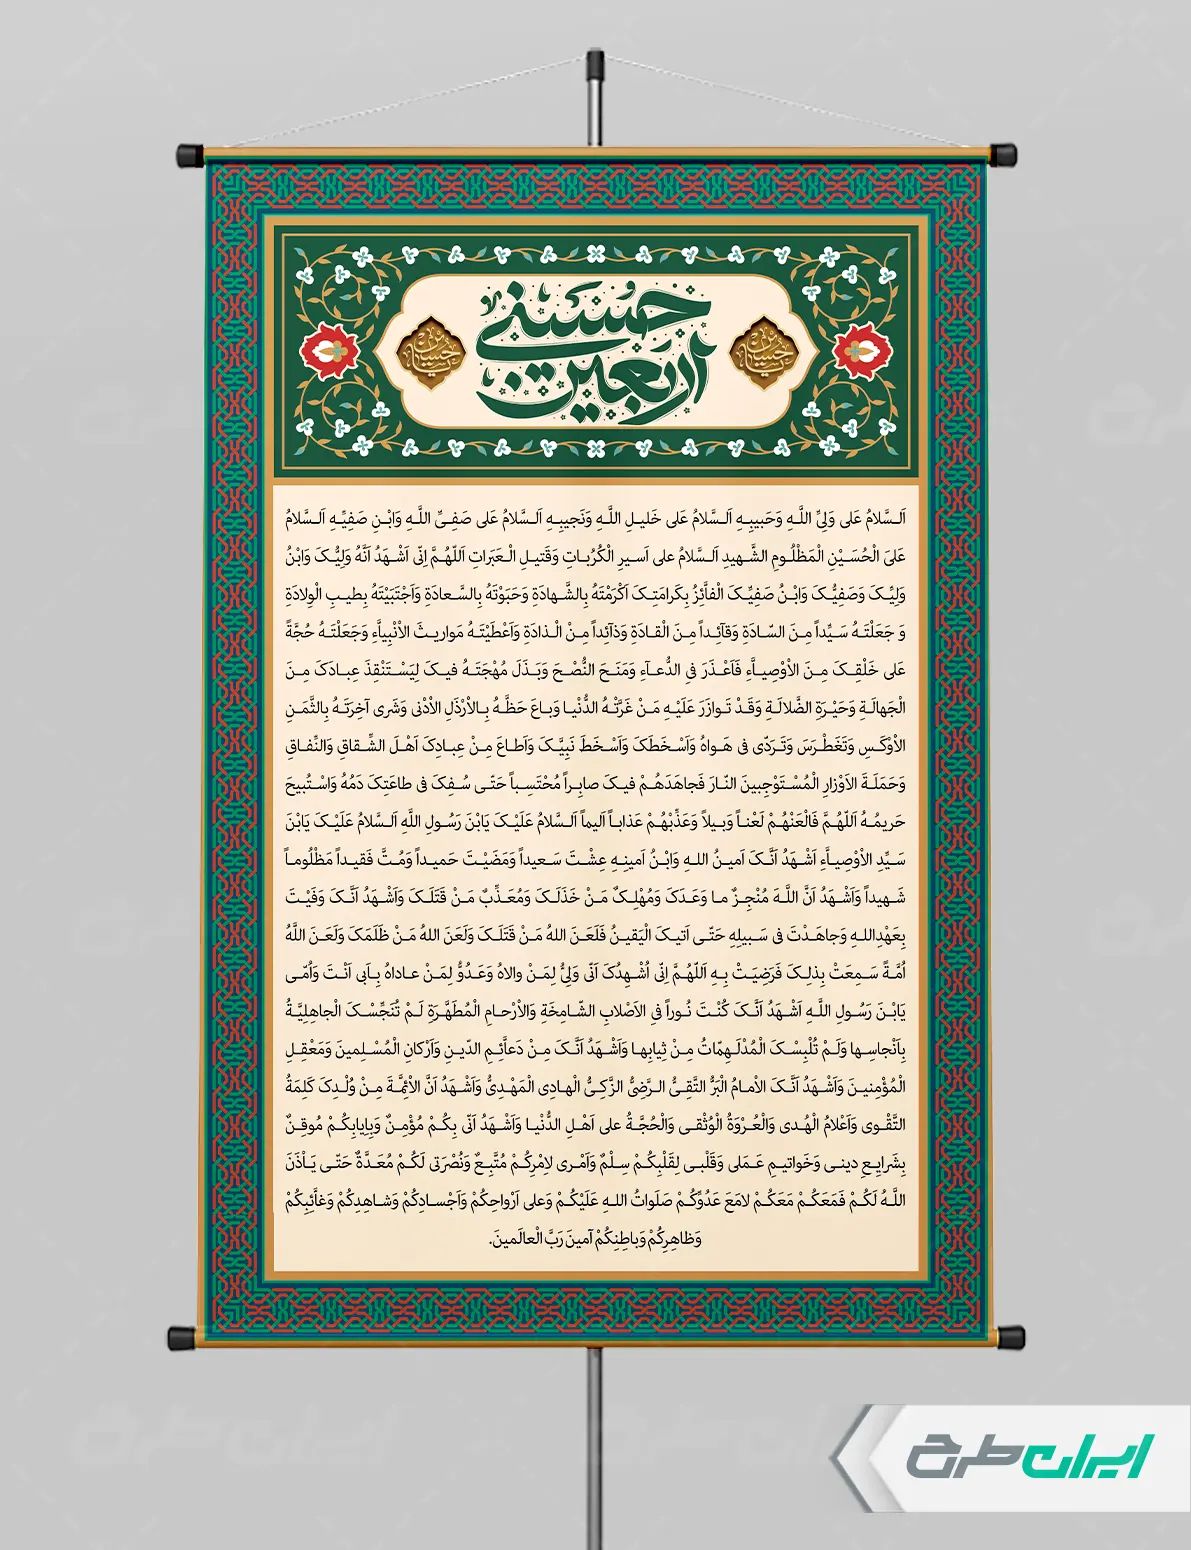 اربعین حسینی
یا حسین
یا حسین
اَلسَّلامُ عَلی وَلِیِّ اللَّهِ وَحَبیبِهِ اَلسَّلامُ عَلی خَلیلِ اللَّهِ وَنَجیبِهِ اَلسَّلامُ عَلی صَفِیِّ اللَّهِ وَابْنِ صَفِیِّهِ اَلسَّلامُ
عَلیَ الْحُسَیْنِ الْمَظْلُومِ الشَّهیدِ اَلسَّلامُ علی اَسیرِ الْکُرُباتِ وَقَتیلِ الْعَبَراتِ اَللّهُمَّ اِنّی اَشْهَدُ اَنَّهُ وَلِیُّکَ وَابْنُ
وَلِیِّکَ وَصَفِیُّکَ وَابْنُ صَفِیِّکَ الْفاَّئِزُ بِکَرامَتِکَ اَکْرَمْتَهُ بِالشَّهادَةِ وَحَبَوْتَهُ بِالسَّعادَةِ وَاَجْتَبَیْتَهُ بِطیبِ الْوِلادَةِ
وَ جَعَلْتَهُ سَیِّداً مِنَ السّادَةِ وَقآئِداً مِنَ الْقادَةِ وَذآئِداً مِنْ الْذادَةِ وَاَعْطَیْتَهُ مَواریثَ الاَْنْبِیاَّءِ وَجَعَلْتَهُ حُجَّةً
عَلی خَلْقِکَ مِنَ الاَْوْصِیاَّءِ فَاَعْذَرَ فیِ الدُّعآءِ وَمَنَحَ النُّصْحَ وَبَذَلَ مُهْجَتَهُ فیکَ لِیَسْتَنْقِذَ عِبادَکَ مِنَ
الْجَهالَةِ وَحَیْرَةِ الضَّلالَةِ وَقَدْ تَوازَرَ عَلَیْهِ مَنْ غَرَّتْهُ الدُّنْیا وَباعَ حَظَّهُ بِالاَْرْذَلِ الاَْدْنی وَشَری آخِرَتَهُ بِالثَّمَنِ
الاَْوْکَسِ وَتَغَطْرَسَ وَتَرَدّی فی هَواهُ وَاَسْخَطَکَ وَاَسْخَطَ نَبِیَّکَ وَاَطاعَ مِنْ عِبادِکَ اَهْلَ الشِّقاقِ وَالنِّفاقِ
وَحَمَلَةَ الاَْوْزارِ الْمُسْتَوْجِبینَ النّارَ فَجاهَدَهُمْ فیکَ صابِراً مُحْتَسِباً حَتّی سُفِکَ فی طاعَتِکَ دَمُهُ وَاسْتُبیحَ
حَریمُهُ اَللّهُمَّ فَالْعَنْهُمْ لَعْناً وَبیلاً وَعَذِّبْهُمْ عَذاباً اَلیماً اَلسَّلامُ عَلَیْکَ یَابْنَ رَسُولِ اللَّهِ اَلسَّلامُ عَلَیْکَ یَابْنَ
سَیِّدِ الاَْوْصِیاَّءِ اَشْهَدُ اَنَّکَ اَمینُ اللهِ وَابْنُ اَمینِهِ عِشْتَ سَعیداً وَمَضَیْتَ حَمیداً وَمُتَّ فَقیداً مَظْلُوماً
شَهیداً وَاَشْهَدُ اَنَّ اللَّهَ مُنْجِزٌ ما وَعَدَکَ وَمُهْلِکٌ مَنْ خَذَلَکَ وَمُعَذِّبٌ مَنْ قَتَلَکَ وَاَشْهَدُ اَنَّکَ وَفَیْتَ
بِعَهْدِاللهِ وَجاهَدْتَ فی سَبیلِهِ حَتّی اَتیکَ الْیَقینُ فَلَعَنَ اللهُ مَنْ قَتَلَکَ وَلَعَنَ اللهُ مَنْ ظَلَمَکَ وَلَعَنَ اللَّهُ
اُمَّةً سَمِعَتْ بِذلِکَ فَرَضِیَتْ بِهِ اَللّهُمَّ اِنّی اُشْهِدُکَ اَنّی وَلِیٌّ لِمَنْ والاهُ وَعَدُوٌّ لِمَنْ عاداهُ بِاَبی اَنْتَ وَاُمّی
یَابْنَ رَسُولِ اللَّهِ اَشْهَدُ اَنَّکَ کُنْتَ نُوراً فیِ الاَْصْلابِ الشّامِخَةِ وَالاَْرْحامِ الْمُطَهَّرَةِ لَمْ تُنَجِّسْکَ الْجاهِلِیَّةُ
بِاَنْجاسِها وَلَمْ تُلْبِسْکَ الْمُدْلَهِمّاتُ مِنْ ثِیابِها وَاَشْهَدُ اَنَّکَ مِنْ دَعاَّئِمِ الدّینِ وَاَرْکانِ الْمُسْلِمینَ وَمَعْقِلِ
الْمُؤْمِنینَ وَاَشْهَدُ اَنَّکَ الاِْمامُ الْبَرُّ التَّقِیُّ الرَّضِیُّ الزَّکِیُّ الْهادِی الْمَهْدِیُّ وَاَشْهَدُ اَنَّ الاَْئِمَّةَ مِنْ وُلْدِکَ کَلِمَةُ
التَّقْوی وَاَعْلامُ الْهُدی وَالْعُرْوَةُ الْوُثْقی وَالْحُجَّةُ علی اَهْلِ الدُّنْیا وَاَشْهَدُ اَنّی بِکُمْ مُؤْمِنٌ وَبِاِیابِکُمْ مُوقِنٌ
بِشَرایِعِ دینی وَخَواتیمِ عَمَلی وَقَلْبی لِقَلْبِکُمْ سِلْمٌ وَاَمْری لاَِمْرِکُمْ مُتَّبِعٌ وَنُصْرَتی لَکُمْ مُعَدَّةٌ حَتّی یَاْذَنَ
اللَّهُ لَکُمْ فَمَعَکُمْ مَعَکُمْ لامَعَ عَدُوِّکُمْ صَلَواتُ اللهِ عَلَیْکُمْ وَعلی اَرْواحِکُمْ وَاَجْسادِکُمْ وَشاهِدِکُمْ وَغاَّئِبِکُمْ
وَظاهِرِکُمْ وَباطِنِکُمْ آمینَ رَبَّ الْعالَمینَ.
ایران طرح